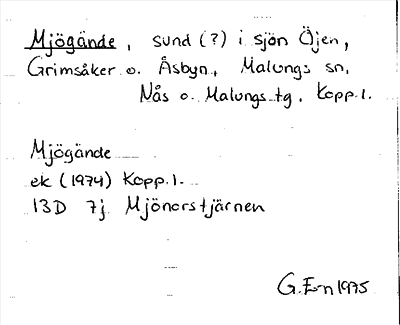 Mjögände, sund (?) i sjön Öjen,
Grimsåker o. Åsbyn, Malungs sn,
Nås o. Malungs tg. Kopp. l.
Mjögände
ek (1974) Kopp. l.
13D 7j Mjönorstjärnen
G. E-n 1975